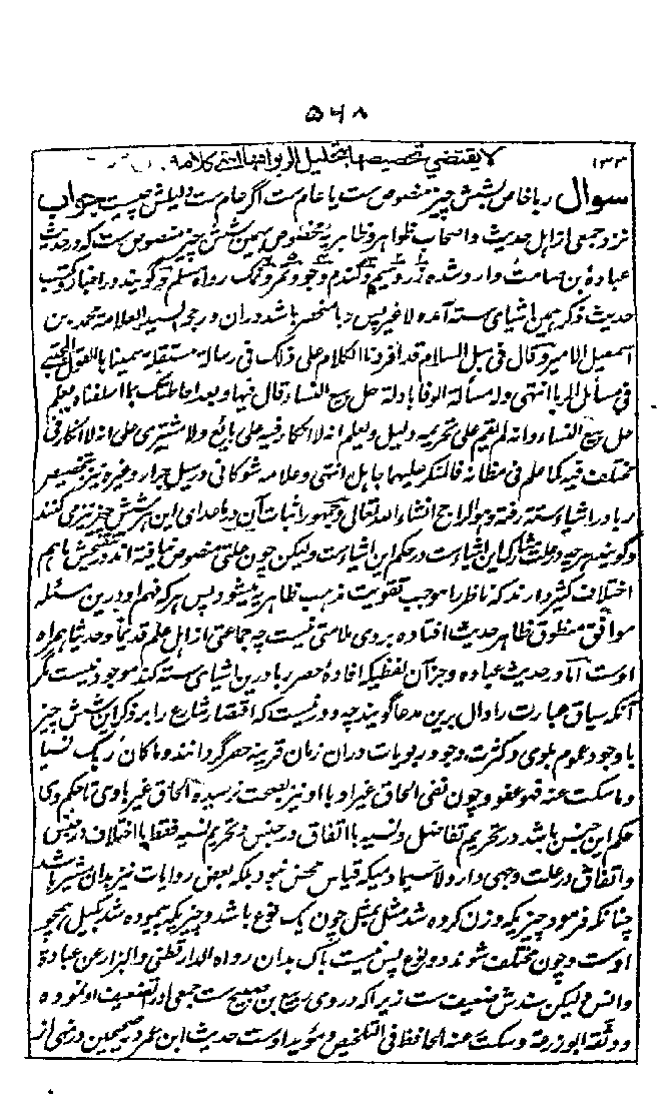 ۵۶۸
۱۳۳
لا يقتضي تخصيصها بتحليل الربوا فيها انتهى كلامه
سوال ربا خاص بشش چیز منصوص ست یا عام ست اگر عام ست دلیلش چیست جواب
نزد جمعی از اهل حدیث و اصحاب ظواهر و ظاهریه مخصوص بهمین شش چیز منصوص ست که در حدیث
عبادة بن صامت وارد شده زر و سیم و گندم و جو و تمر و نمک رواه مسلم و گویند در اخبار و کتب
حدیث ذکر همین اشیای سته آمده لا غیر پس ربا منحصر باشد دران و رجح السید العلامة محمد بن
اسمعیل الامیر و قال فی سبل السلام قد افردنا الکلام علی ذلک فی رسالة مستقلة سمیناها القول المجتبی
فی مسائل الربا انتهی وله مسألة الوفا بادلة حل بیع النساء قال فیها و بعد احاطتک بما اسلفناه یعلم
حل بیع النساء و انه لم یقم علی تحریمه دلیل و یعلم انه لا انکار فیه علی بائع ولا مشتری علی انه لا انکار فی
مختلف فیه کما علم فی مظانه فالمنکر علیهما جاهل انتهی و علامه شوکانی در سیل جرار و غیره نیز بتخصیص
ربا در اشیاء سته رفته و هو الراجح انشاء الله تعالی و جمهور اثبات آن در ماعدای این هر شش چیز نیز می کنند
و گویند هر چه در علت مشارک این اشیاست در حکم این اشیاست ولیکن چون علتی منصوص نیافته اند در تعینش باهم
اختلاف کثیر دارند که ناظر را موجب تقویت مذهب ظاهریه میشود پس هر که فهم او درین مسئله
موافق منطوق ظاهر حدیث افتاده بر وی ملامتی نیست چه جماعتی از اهل علم قدیما و حدیثا همراه
اوست اما در حدیث عباده و جز آن لفظیکه افاده حصر ربا درین اشیای سته کند موجود نیست مگر
آنکه سیاق عبارت را دال برین مدعا گویند چه دور نیست که اقتصار شارع را بر ذکر این شش چیز
با وجود عموم بلوی و کثرت وجود ربویات دران زمان قرینه حصر گردانند و ما کان ربک نسیا
و ما سکت عنه فهو عفو و چون نفی الحاق غیر او با او نیز بصحت نرسیده الحاق غیر باوی تا حکم وی
حکم این جنس باشد در تحریم تفاضل و نسیه با اتفاق در جنس و تحریم نسیه فقط با اختلاف در جنس
و اتفاق در علت وجهی دارد لا سیما دمیکه قیاس محض نبود بلکه بعض روایات نیز بدان مشیر باشد
چنانکه فرمود چیزیکه وزن کرده شد مثل بمثل چون یک نوع باشد و چیزیکه پیموده شد بکیل همچو
اوست و چون مختلف شوند دو نوع پس نیست باک بدان رواه الدارقطنی و البزار عن عبادة
و انس لیکن سندش ضعیف ست زیرا که در وی ربیع بن صبیح ست جمعی اورا تضعیف نموده
و وثقه ابو زرعة و سکت عنه الحافظ فی التلخیص و مؤید اوست حدیث ابن عمر در صحیحین در نهی از